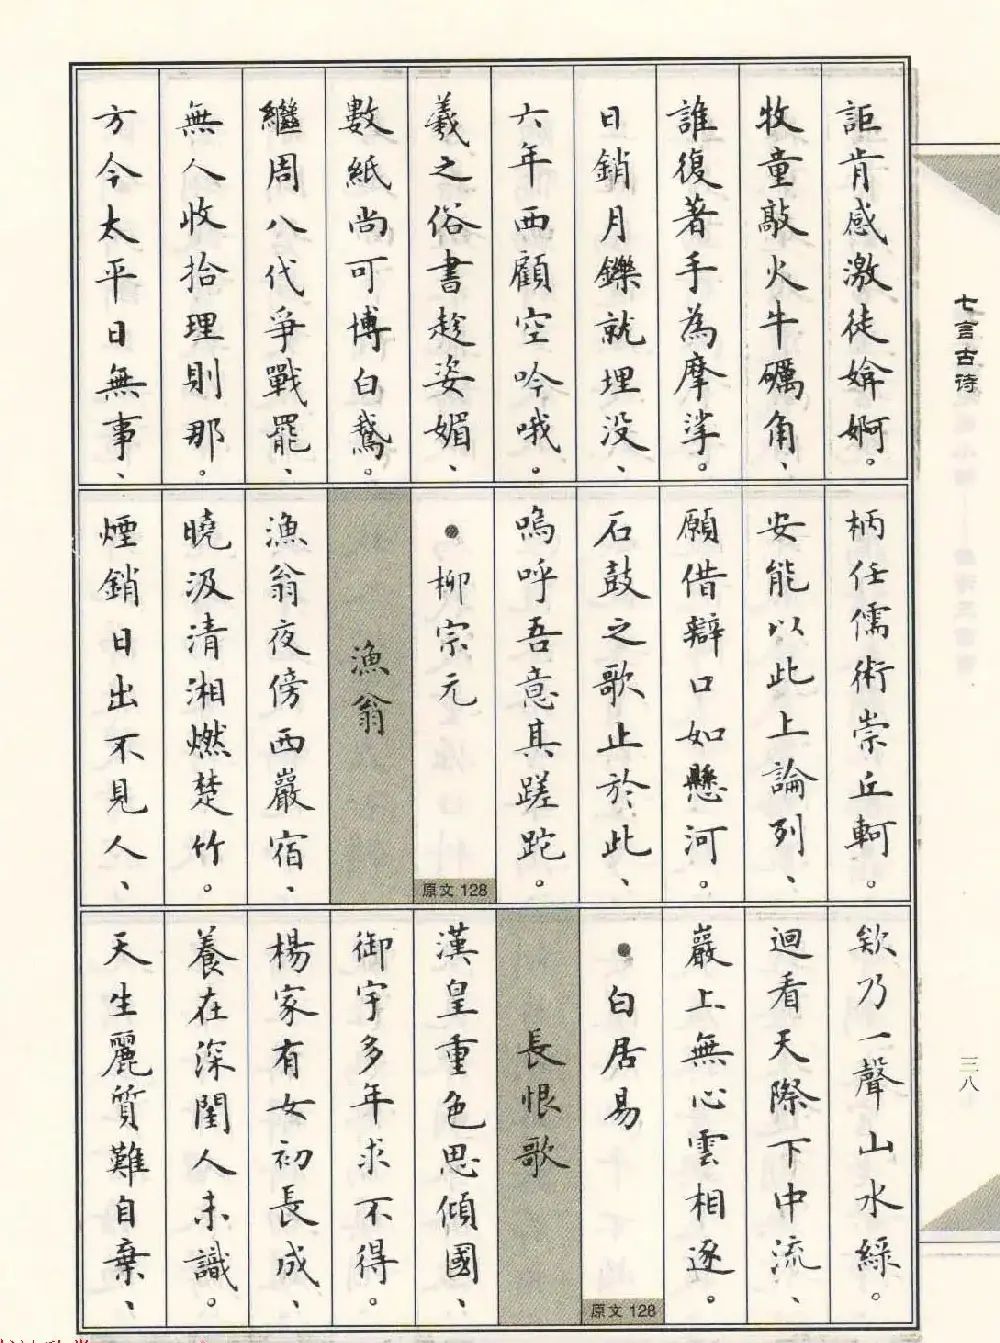 詎肯感激徒媕婀。
牧童敲火牛礪角、
誰復著手為摩挲。
日銷月鑠就埋没、
六年西顧空吟哦。
羲之俗書趁姿媚、
數紙尚可博白鵞。
繼周八代爭戰罷、
無人收拾理則那。
方今太平日無事、
柄任儒術崇丘軻。
安能以此上論列、
願借辯口如懸河。
石鼓之歌止於此、
嗚呼吾意其蹉跎。
●柳宗元
原文128
漁翁
漁翁夜傍西巖宿、
曉汲清湘燃楚竹。
煙銷日出不見人、
欸乃一聲山水綠。
迴看天際下中流、
巖上無心雲相逐。
●白居易
原文128
長恨歌
漢皇重色思傾國、
御宇多年求不得。
楊家有女初長成、
養在深閨人未識。
天生麗質難自棄、
七言古诗
三八